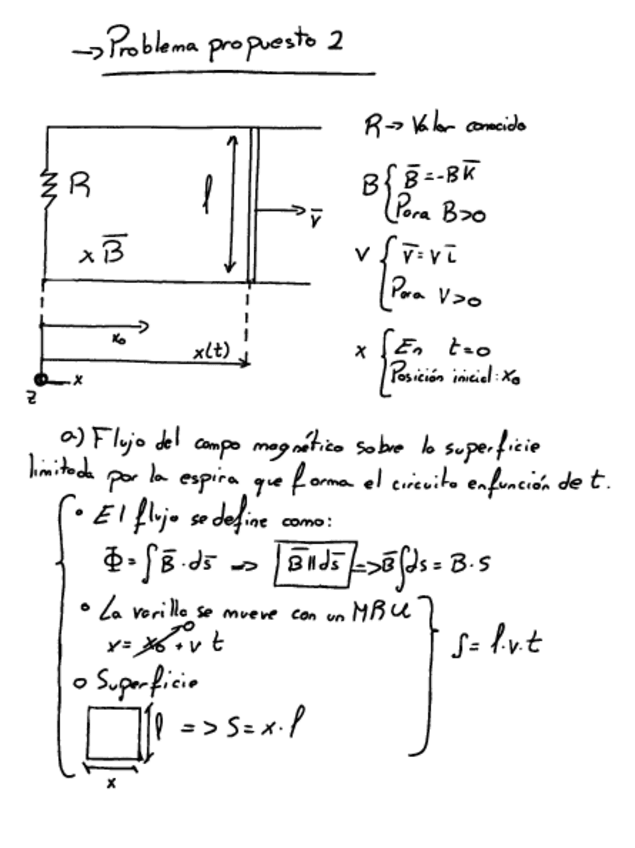 → Problema propuesto 2
R → Valor conocido
R
l
v̅
x B̅
B { B̅ = -B K̅
Para B>0
v { v̅ = v i̅
Para v>0
x₀
x(t)
x
z
x { En t=0
Posición inicial: x₀
a) Flujo del campo magnético sobre la superficie
limitada por la espira que forma el circuito en función de t.
• El flujo se define como:
Φ = ∫ B̅ · ds̅ → B̅ || ds̅ => B̅ ∫ ds = B · S
• La varilla se mueve con un MRU
x = x₀ + v t
0
S = l·v·t
o Superficie
l => S = x · l
x